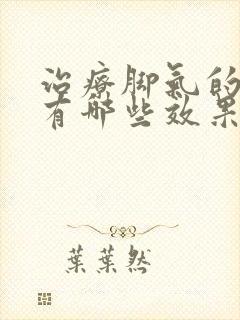 治療脚氣的
有哪些效果
葉葉然